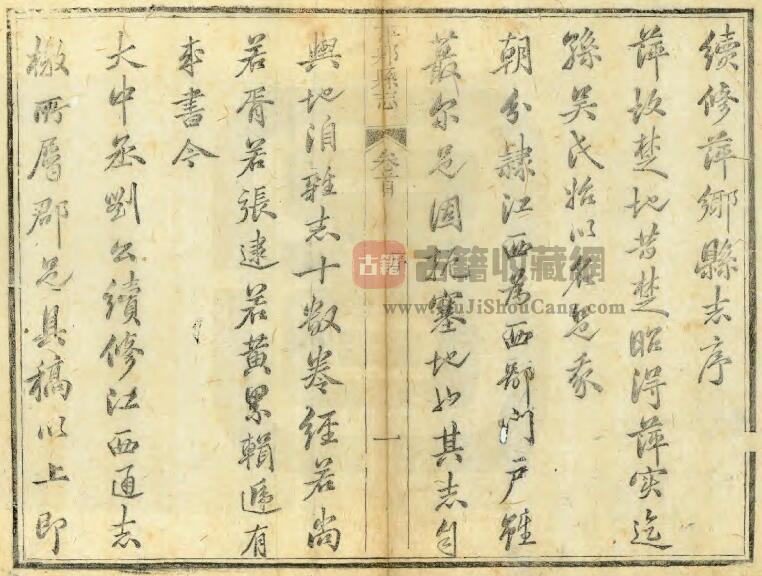 續修萍鄉縣志序
萍故楚地昔楚昭得萍實迄
孫吳氏始以名邑我
朝分隸江西為西鄙門戶雖
蕞尔邑固扼塞地也其志自
萍鄉縣志
卷首
一
輿地洎雜志十數卷經若尚
若胥若張逮若黃累輯遞有
成書今
大中丞劉公續修江西通志
檄所屬郡邑具稿以上即
古籍
古籍收藏網
www.GuJiShouCang.com